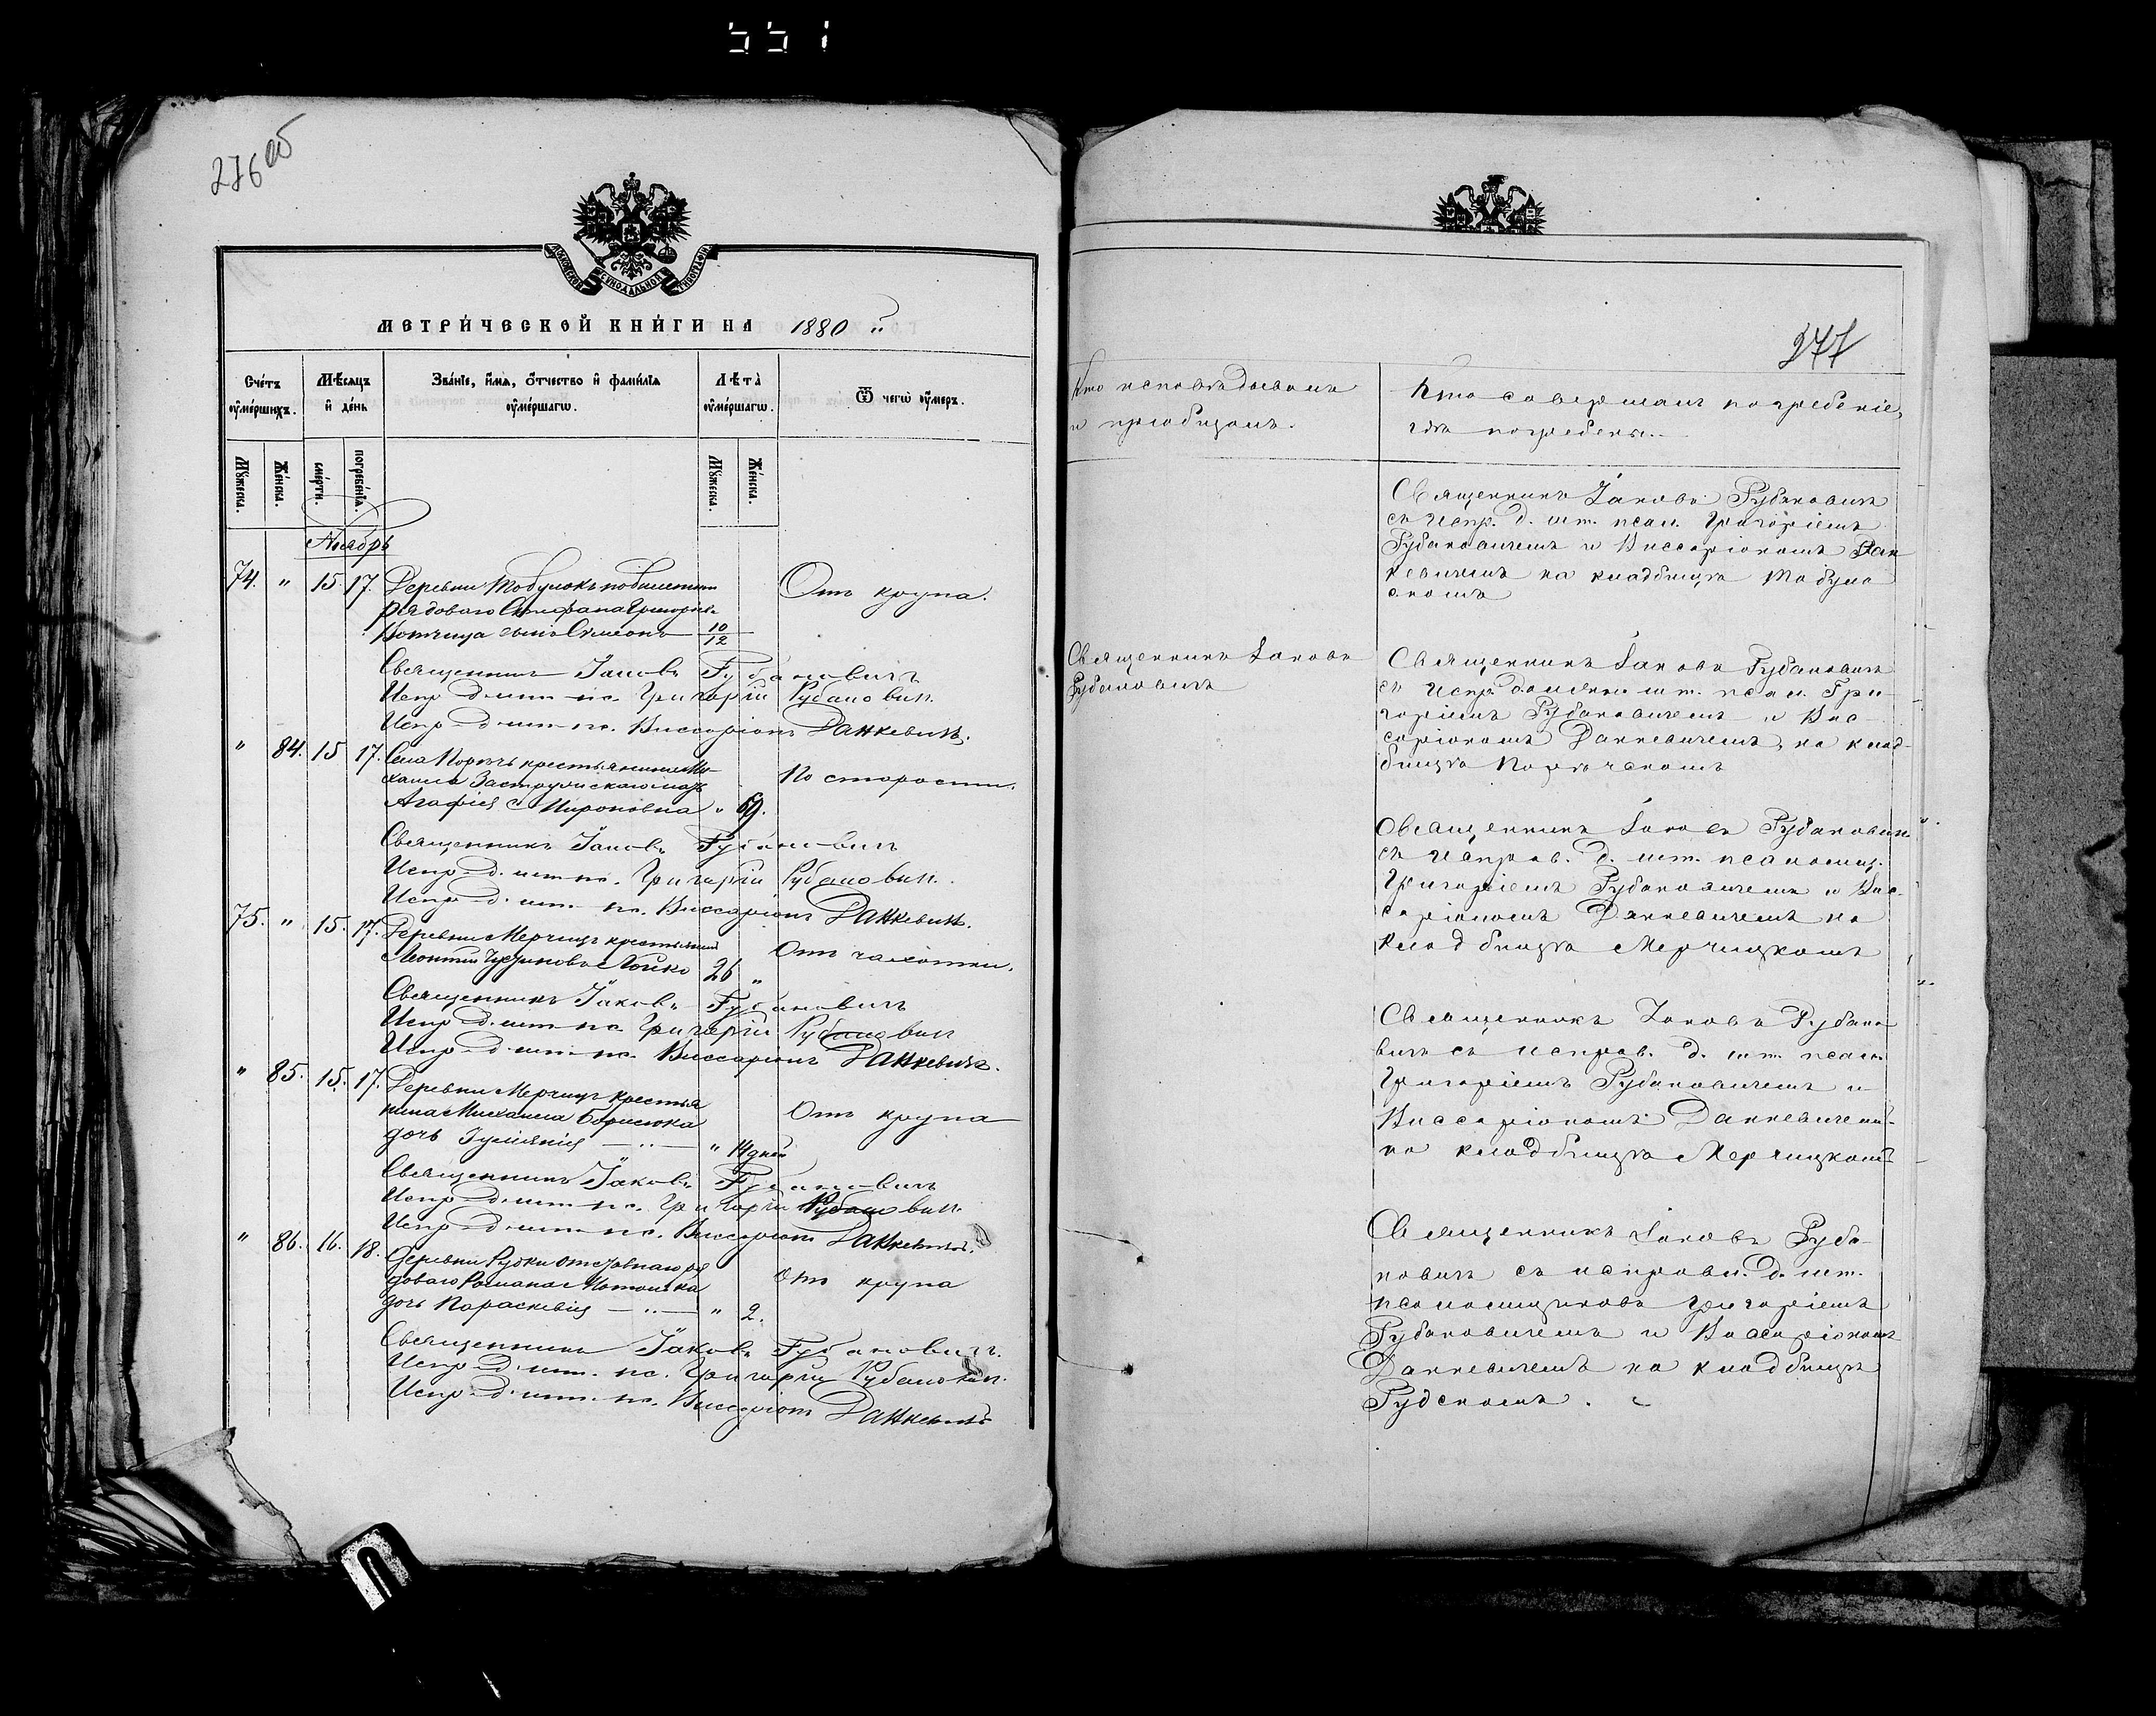 551
276 об
МОСКОВСКОЙ СѴНОДАЛЬНОЙ ТИПОГРАФІИ
МЕТРИ́ЧЕСКОЙ КНИ́ГИ НА 1880
Сче́тъ ᲂу҆ме́ршихъ.
Мѣ́сяцъ и҆ де́нь
Зва́нїе, и҆́мя, ѻ҆́тчество и҆ фами́лїя ᲂу҆ме́ршагѡ.
Лѣ́та ᲂу҆ме́ршагѡ.
Ѿ чегѡ̀ ᲂу҆́меръ.
Мꙋ́жеска.
Же́нска.
сме́рти.
погребе́нїѧ.
Мꙋ́жеска.
Же́нска.
Ноябрь
74. " 15. 17. Деревни Тобулокъ
рядоваго Стефана Григорьева
сынъ Симеонъ 10/12 Отъ крупа.
Священникъ Іаковъ Рубановичъ
Испр. д. шт. пс. Григорій Рубанович.
Испр. д. шт. пс. Виссаріонъ Данкевичъ.
" 84. 15 17. Села Порѣчь крестьянина Ми-
хаила жена
Агафія Мироновна " 69. По старости.
Священникъ Іаковъ Рубановичъ
Испр. д. шт. пс. Григорій Рубанович.
Испр. д. шт. пс. Виссаріонъ Данкевичъ.
75. " 15. 17. Деревни Мерчицъ крестьянинъ
Леонтій Лойко 26 " Отъ чахотки.
Священникъ Іаковъ Рубановичъ
Испр. д. шт. пс. Григорій Рубанович
Испр. д. шт. пс. Виссаріонъ Данкевичъ.
" 85. 15. 17. Деревни Мерчицъ крестья
нина Михаила Борисюка
дочь Іуліанія " 14 дней Отъ крупа
Священникъ Іаковъ Рубановичъ
Испр. д. шт. пс. Григорій Рубанович.
Испр. д. шт. пс. Виссаріонъ Данкевичъ.
" 86. 16. 18. Деревни Рудки отставнаго ря
доваго Романа
дочь Параскевія " 2. Отъ крупа
Священникъ Іаковъ Рубановичъ.
Испр. д. шт. пс. Григорій Рубанович.
Испр. д. шт. пс. Виссаріонъ Данкевичъ
277
Кто исповѣдывалъ
и пріобщалъ.
Кто совершалъ погребеніе,
гдѣ погребены.
Священникъ Іаковъ Рубановичъ
съ испр. д. шт. псал. Григоріемъ
Рубановичемъ и Виссаріономъ Дан
кевичемъ на кладбищѣ Тобул
скомъ
Священникъ Іаковъ
Рубановичъ
Священникъ Іаковъ Рубановичъ
съ испр. должн. шт. псал. Гри-
горіемъ Рубановичемъ и Вис-
саріономъ Данкевичемъ, на клад-
бищѣ Порѣчскомъ
Священникъ Іаковъ Рубанович.
съ исправ. д. шт. псаломщ.
Григоріемъ Рубановичемъ и Вис-
саріономъ Данкевичемъ на
кладбищѣ Мерчицкомъ
Священникъ Іаковъ Рубано
вичъ съ исправ. д. шт. псал.
Григоріемъ Рубановичемъ и
Виссаріономъ Данкевичемъ
на кладбищѣ Мерчицкомъ
Священникъ Іаковъ Руба-
новичъ съ исправл. д. шт.
псаломщиковъ Григоріемъ
Рубановичемъ и Виссаріономъ
Данкевичемъ на кладбищѣ
Рудскомъ.